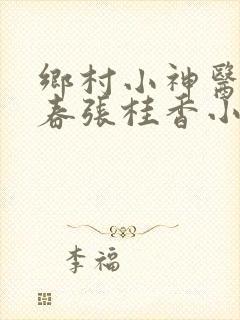 鄉村小神醫
春張桂香小
李福